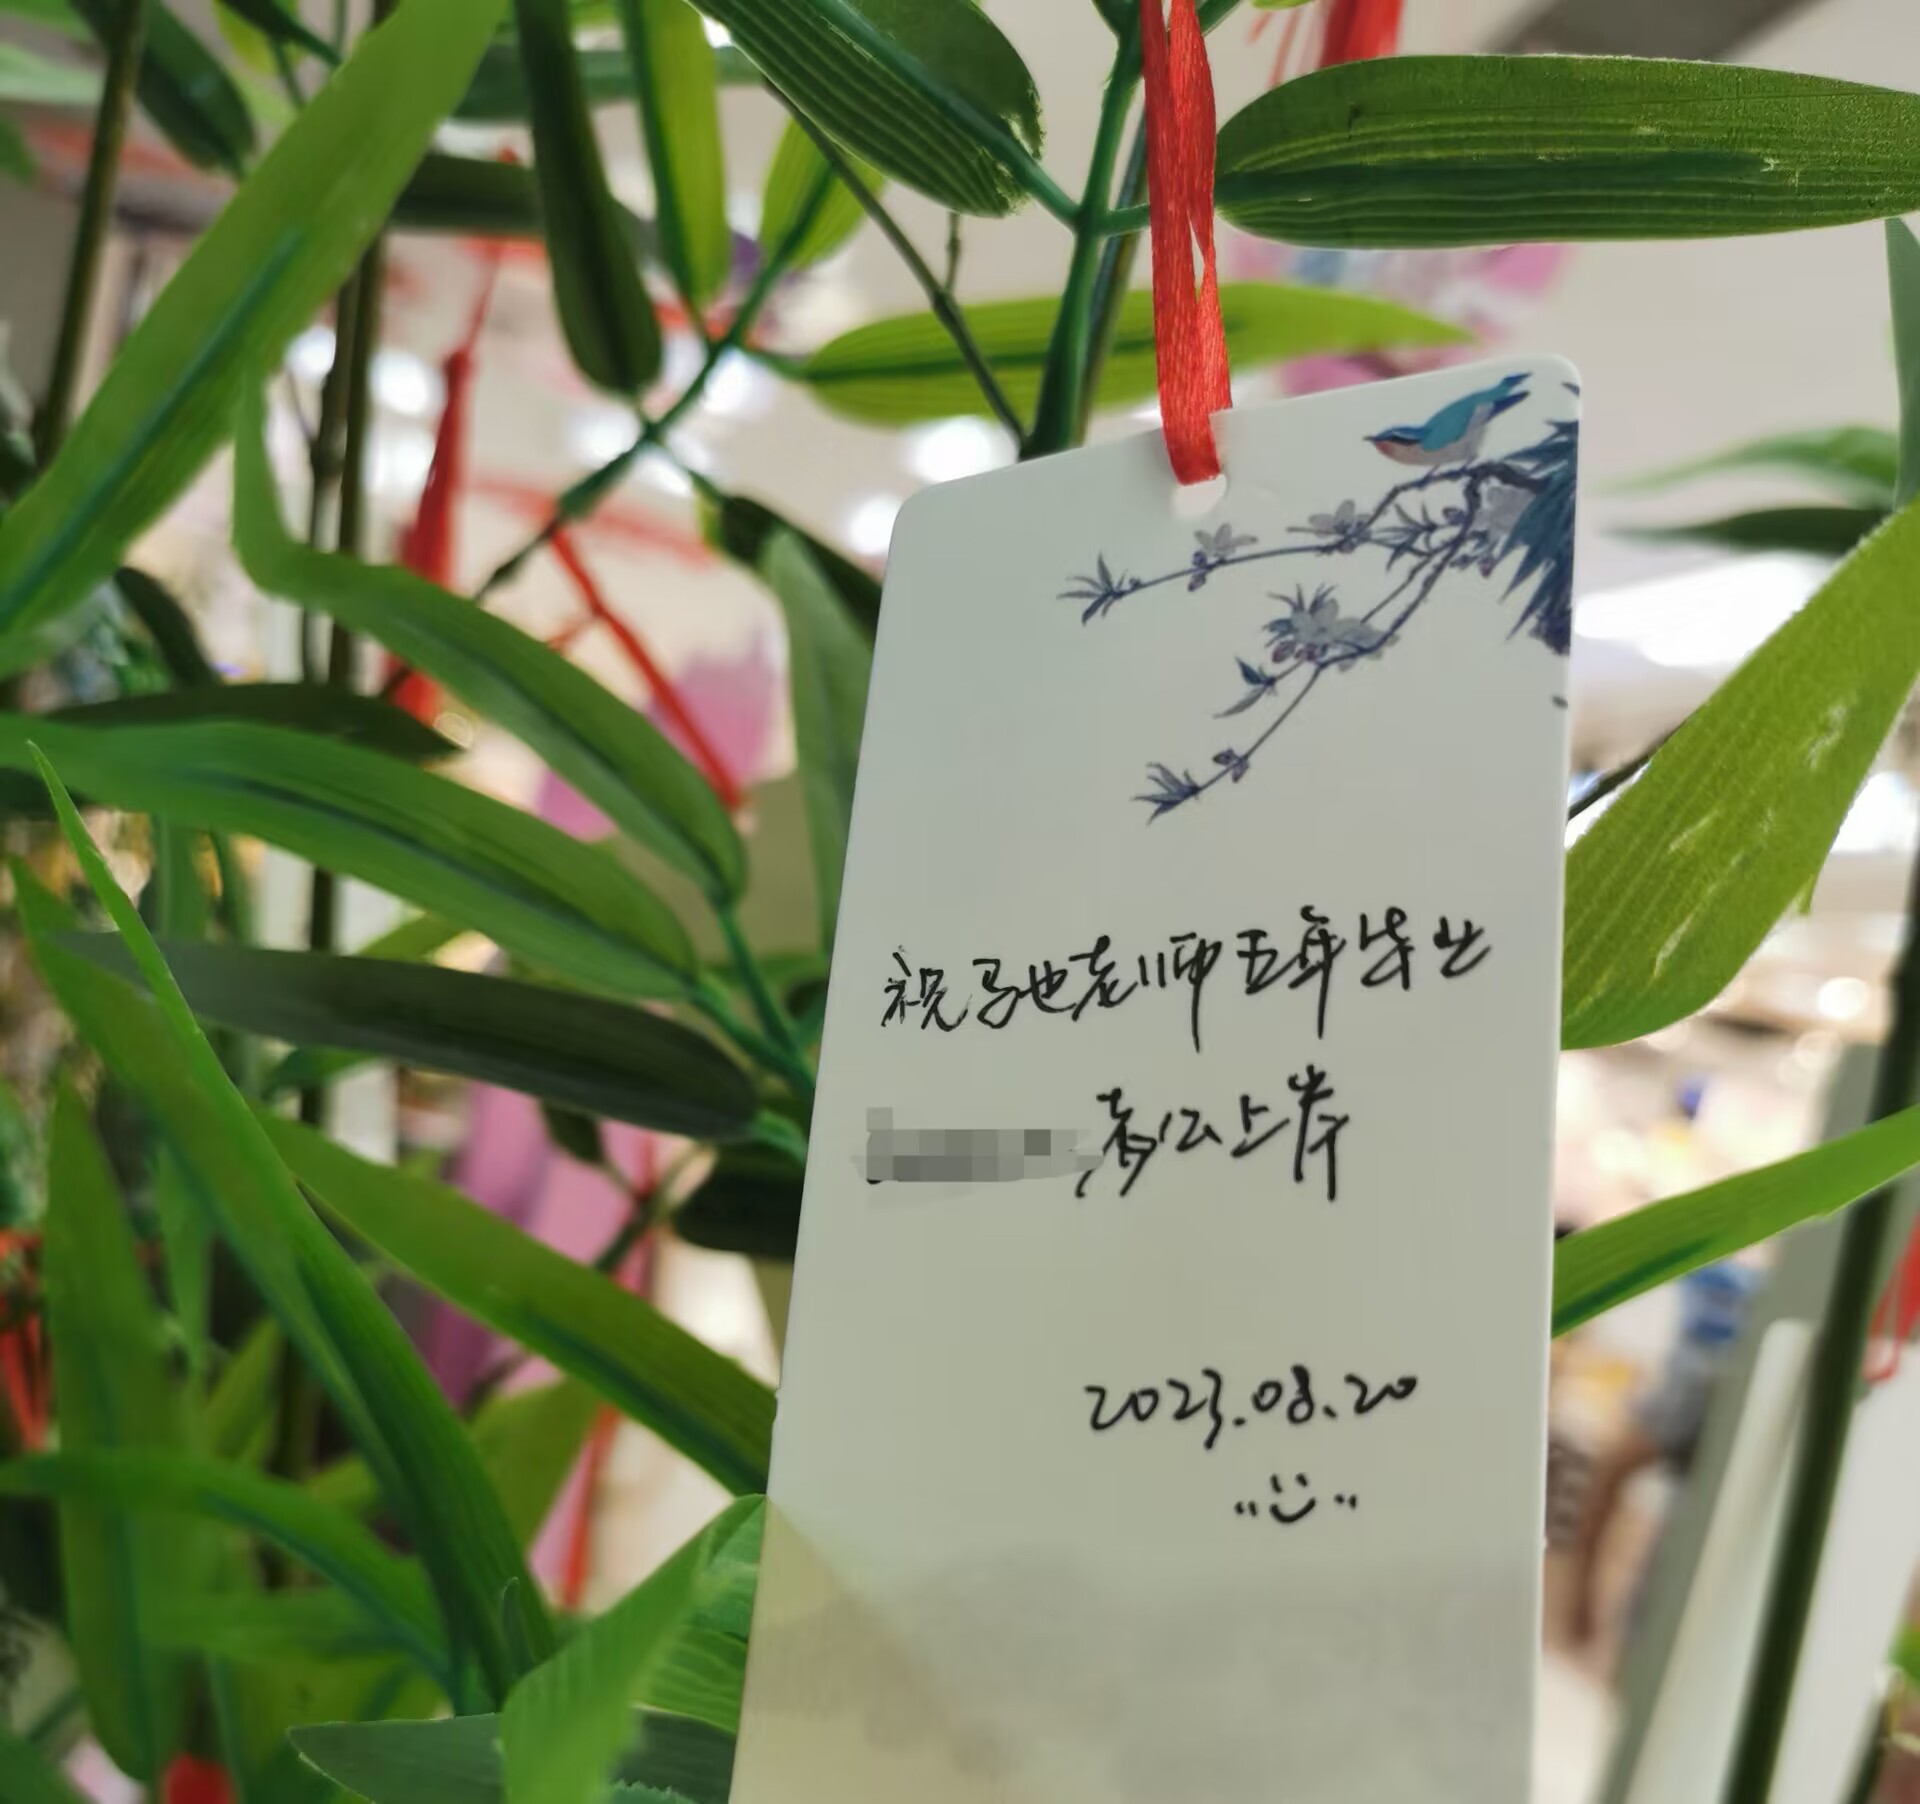 祝驰老师五年毕业
考公上岸
2023.08.20